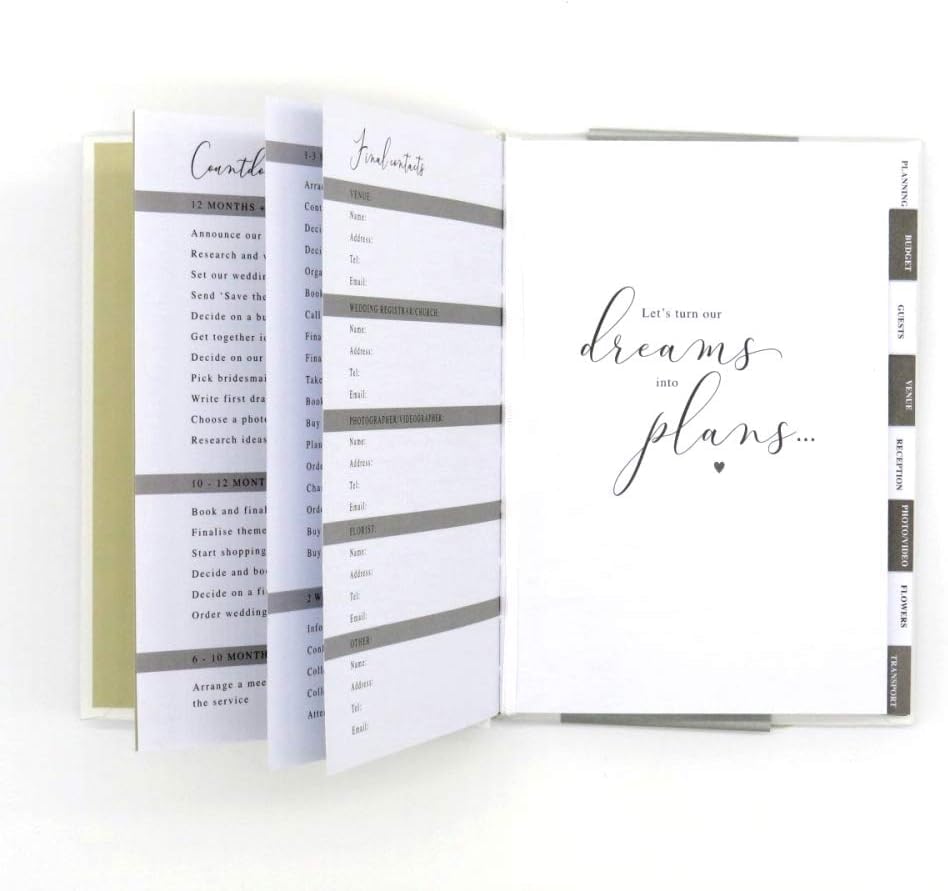 Countdo
12 MONTHS +
Announce our
Research and
Set our weddin
Send 'Save the
Decide on a bu
Get together i
Decide on our
Pick bridesmai
Write first dra
Choose a phot
Research ideas
10 - 12 MONT
Book and final
Finalise theme
Start shopping
Decide and bo
Decide on a fi
Order wedding
6 - 10 MONTH
Arrange a mee
the service
1-3
Arra
Cont
Deci
Deci
Orga
Book
Call
Fina
Fina
Take
Book
Buy
Plan
Orde
Cha
Orde
Buy
Buy
2 W
Info
Con
Coll
Coll
Atte
Final contacts
VENUE:
Name:
Address:
Tel:
Email:
WEDDING REGISTRAR/CHURCH:
Name:
Address:
Tel:
Email:
PHOTOGRAPHER/VIDEOGRAPHER:
Name:
Address:
Tel:
Email:
FLORIST:
Name:
Address:
Tel:
Email:
OTHER:
Name:
Address:
Tel:
Email:
Let's turn our
dreams
into
plans...
PLANNING
BUDGET
GUESTS
VENUE
RECEPTION
PHOTO/VIDEO
FLOWERS
TRANSPORT